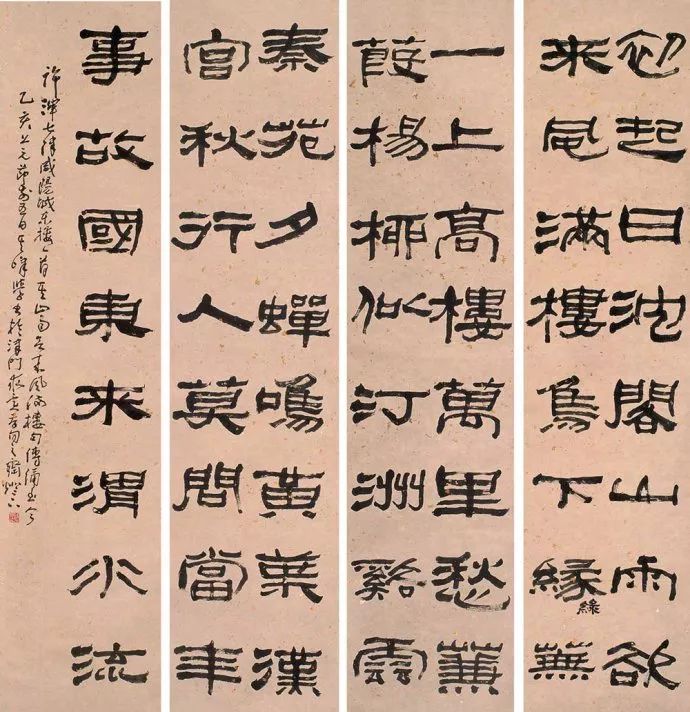 初起日沈閣山雨欲
來風滿樓鳥下緣綠蕪
一上高樓萬里愁蒹
葭楊柳似汀洲谿雲
秦苑夕蟬鳴黃葉漢
宮秋行人莫問當年
事故國東來渭水流
許渾七律咸陽城東樓一首其山雨欲來風滿樓句傳誦至今
乙亥上元節前五日峰學書於津門燈下